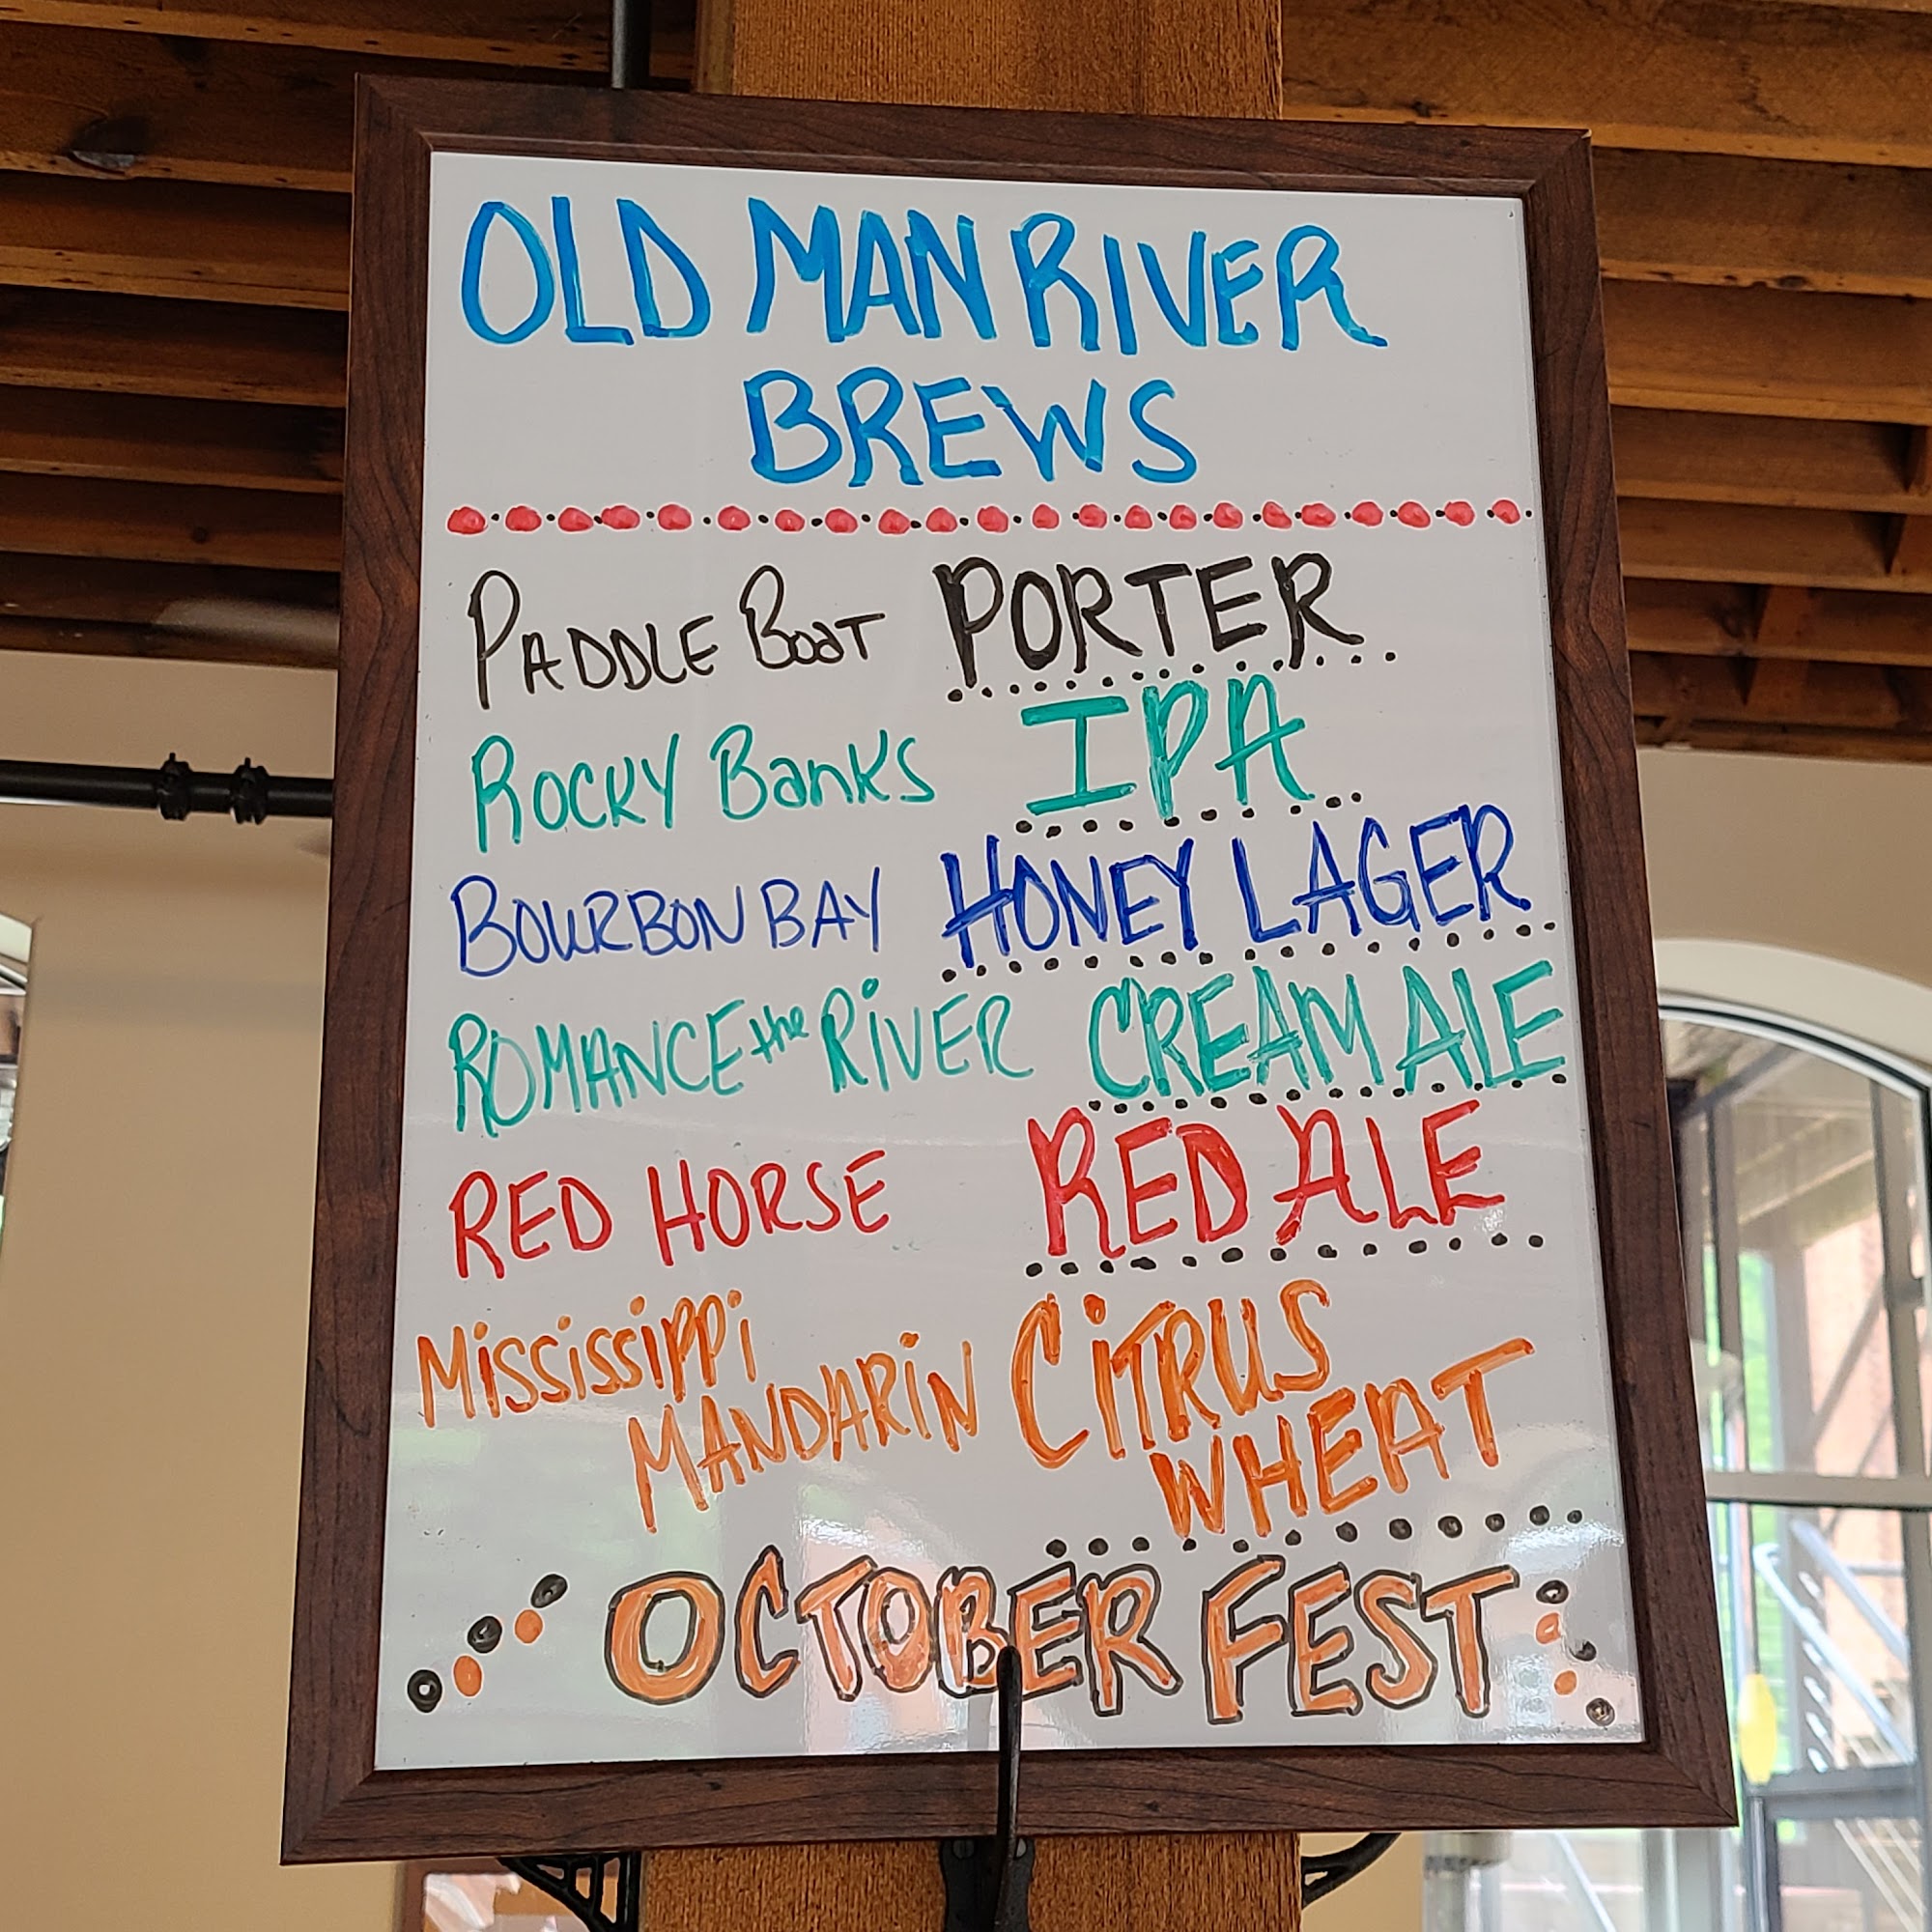 OLD MAN RIVER
BREWS
PADDLE BOAT PORTER
ROCKY BANKS IPA
BOURBON BAY HONEY LAGER
ROMANCE the RIVER CREAM ALE
RED HORSE RED ALE
MISSISSIPPI
MANDARIN CITRUS
WHEAT
OCTOBER FEST